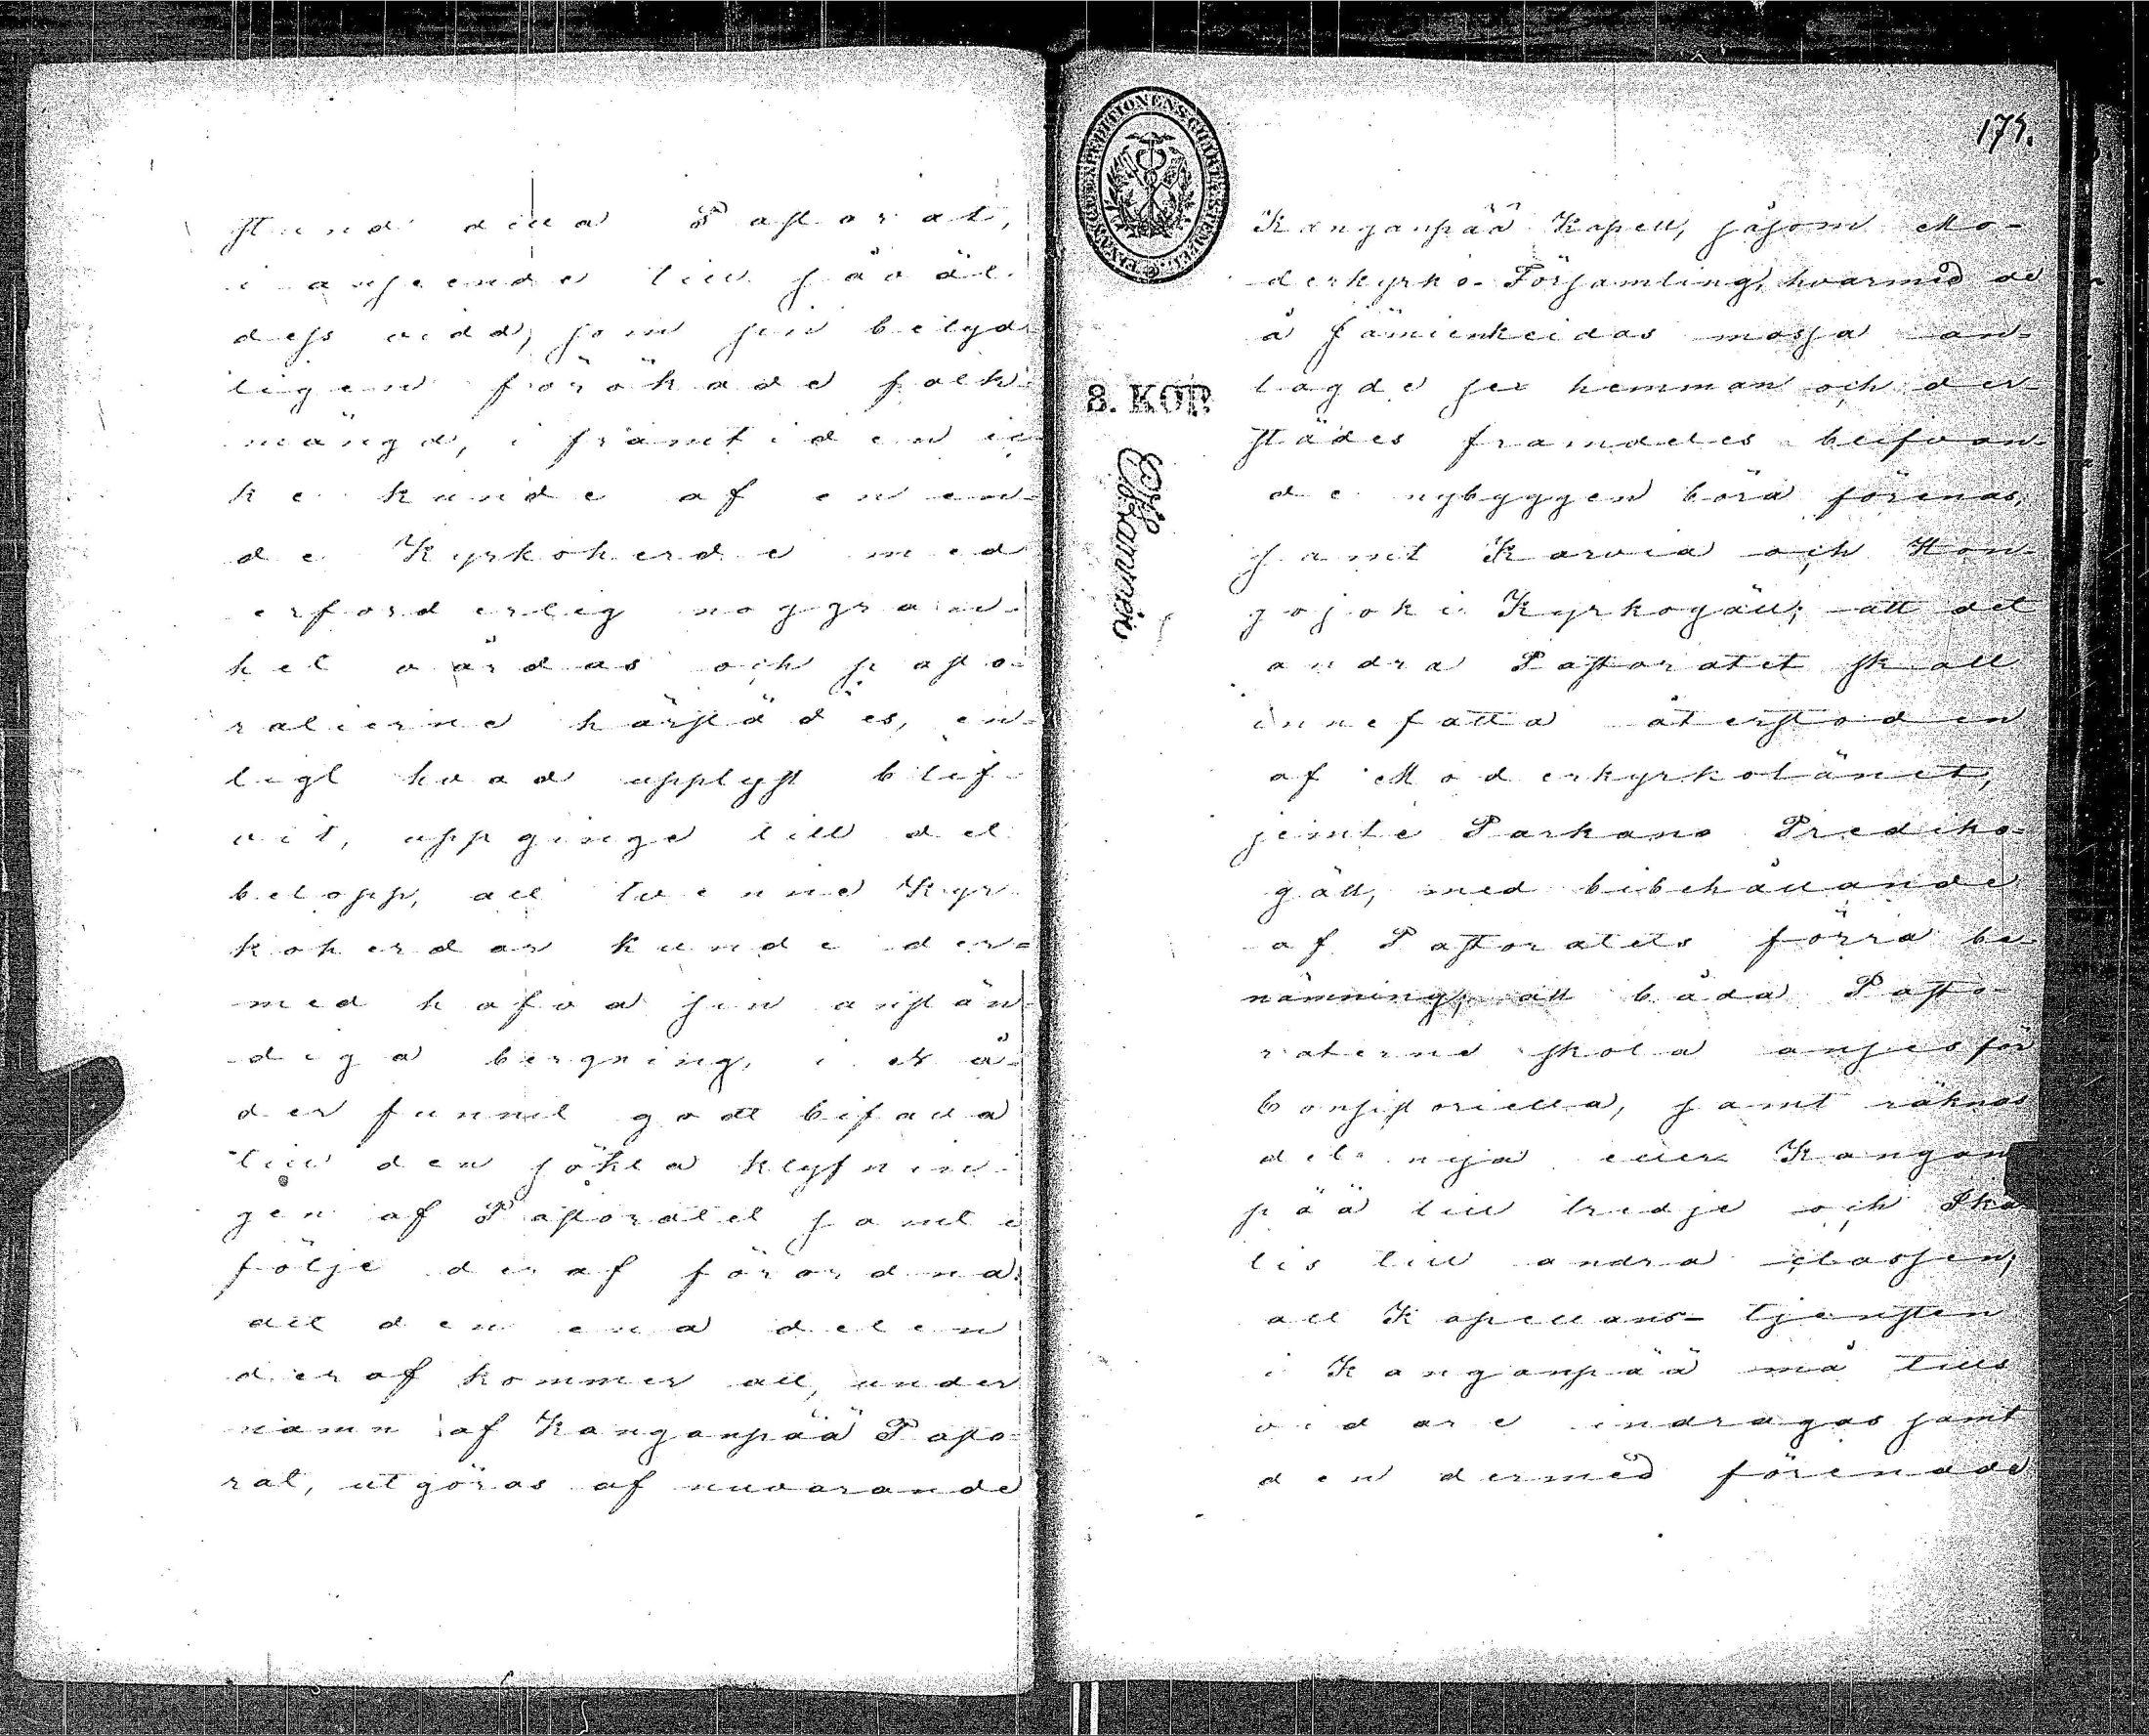 stund detta Pastorat,
i anseende till såväl
dess vidd, som sin betyd-
ligen förökade folk-
mängd, i framtiden ic-
ke kunde af en en-
de Kyrkoherde med
erforderlig noggran-
het vårdas och pasto-
ralierne härstädes, en-
ligt hvad upplyst blif-
vit, uppginge till det
belopp, att tvenne Kyr-
koherdar kunde der-
med hafva sin anstän-
diga bergning, i Nå-
der funnit godt bifalla
till den sökta klyfnin-
gen af Pastoratet samt i
följe deraf förordna:
att den ena delen
deraf kommer att, under
namn af Kanganpää Pasto-
rat, utgöras af nuvarande
175.
FINANCE EXPEDITIONENS CHARTÆ STEMPEL
8. KOP.
Kanganpää Kapell, såsom Mo-
derkyrko-Församling, hvarmed de
å Jämienkeidas mossa an-
lagde sex hemman och der-
städes framdeles blifvan-
de nybyggen böra förenas,
samt Karvia och Hon-
gojoki Kyrkogäll; att det
andra Pastoratet skall
innefatta återstoden
af Moderkyrkolänet,
jemte Parkano Prediko-
gäll, med bibehållande
af Pastoratets förra be-
nämning; att båda Pasto-
raterne skola anses för
Consistoriella, samt räknas
det nya eller Kangan-
pää till tredje och Ika-
lis till andra classen;
att Kapellans-tjensten
i Kanganpää må tills
vidare indragas samt
den dermed förenade